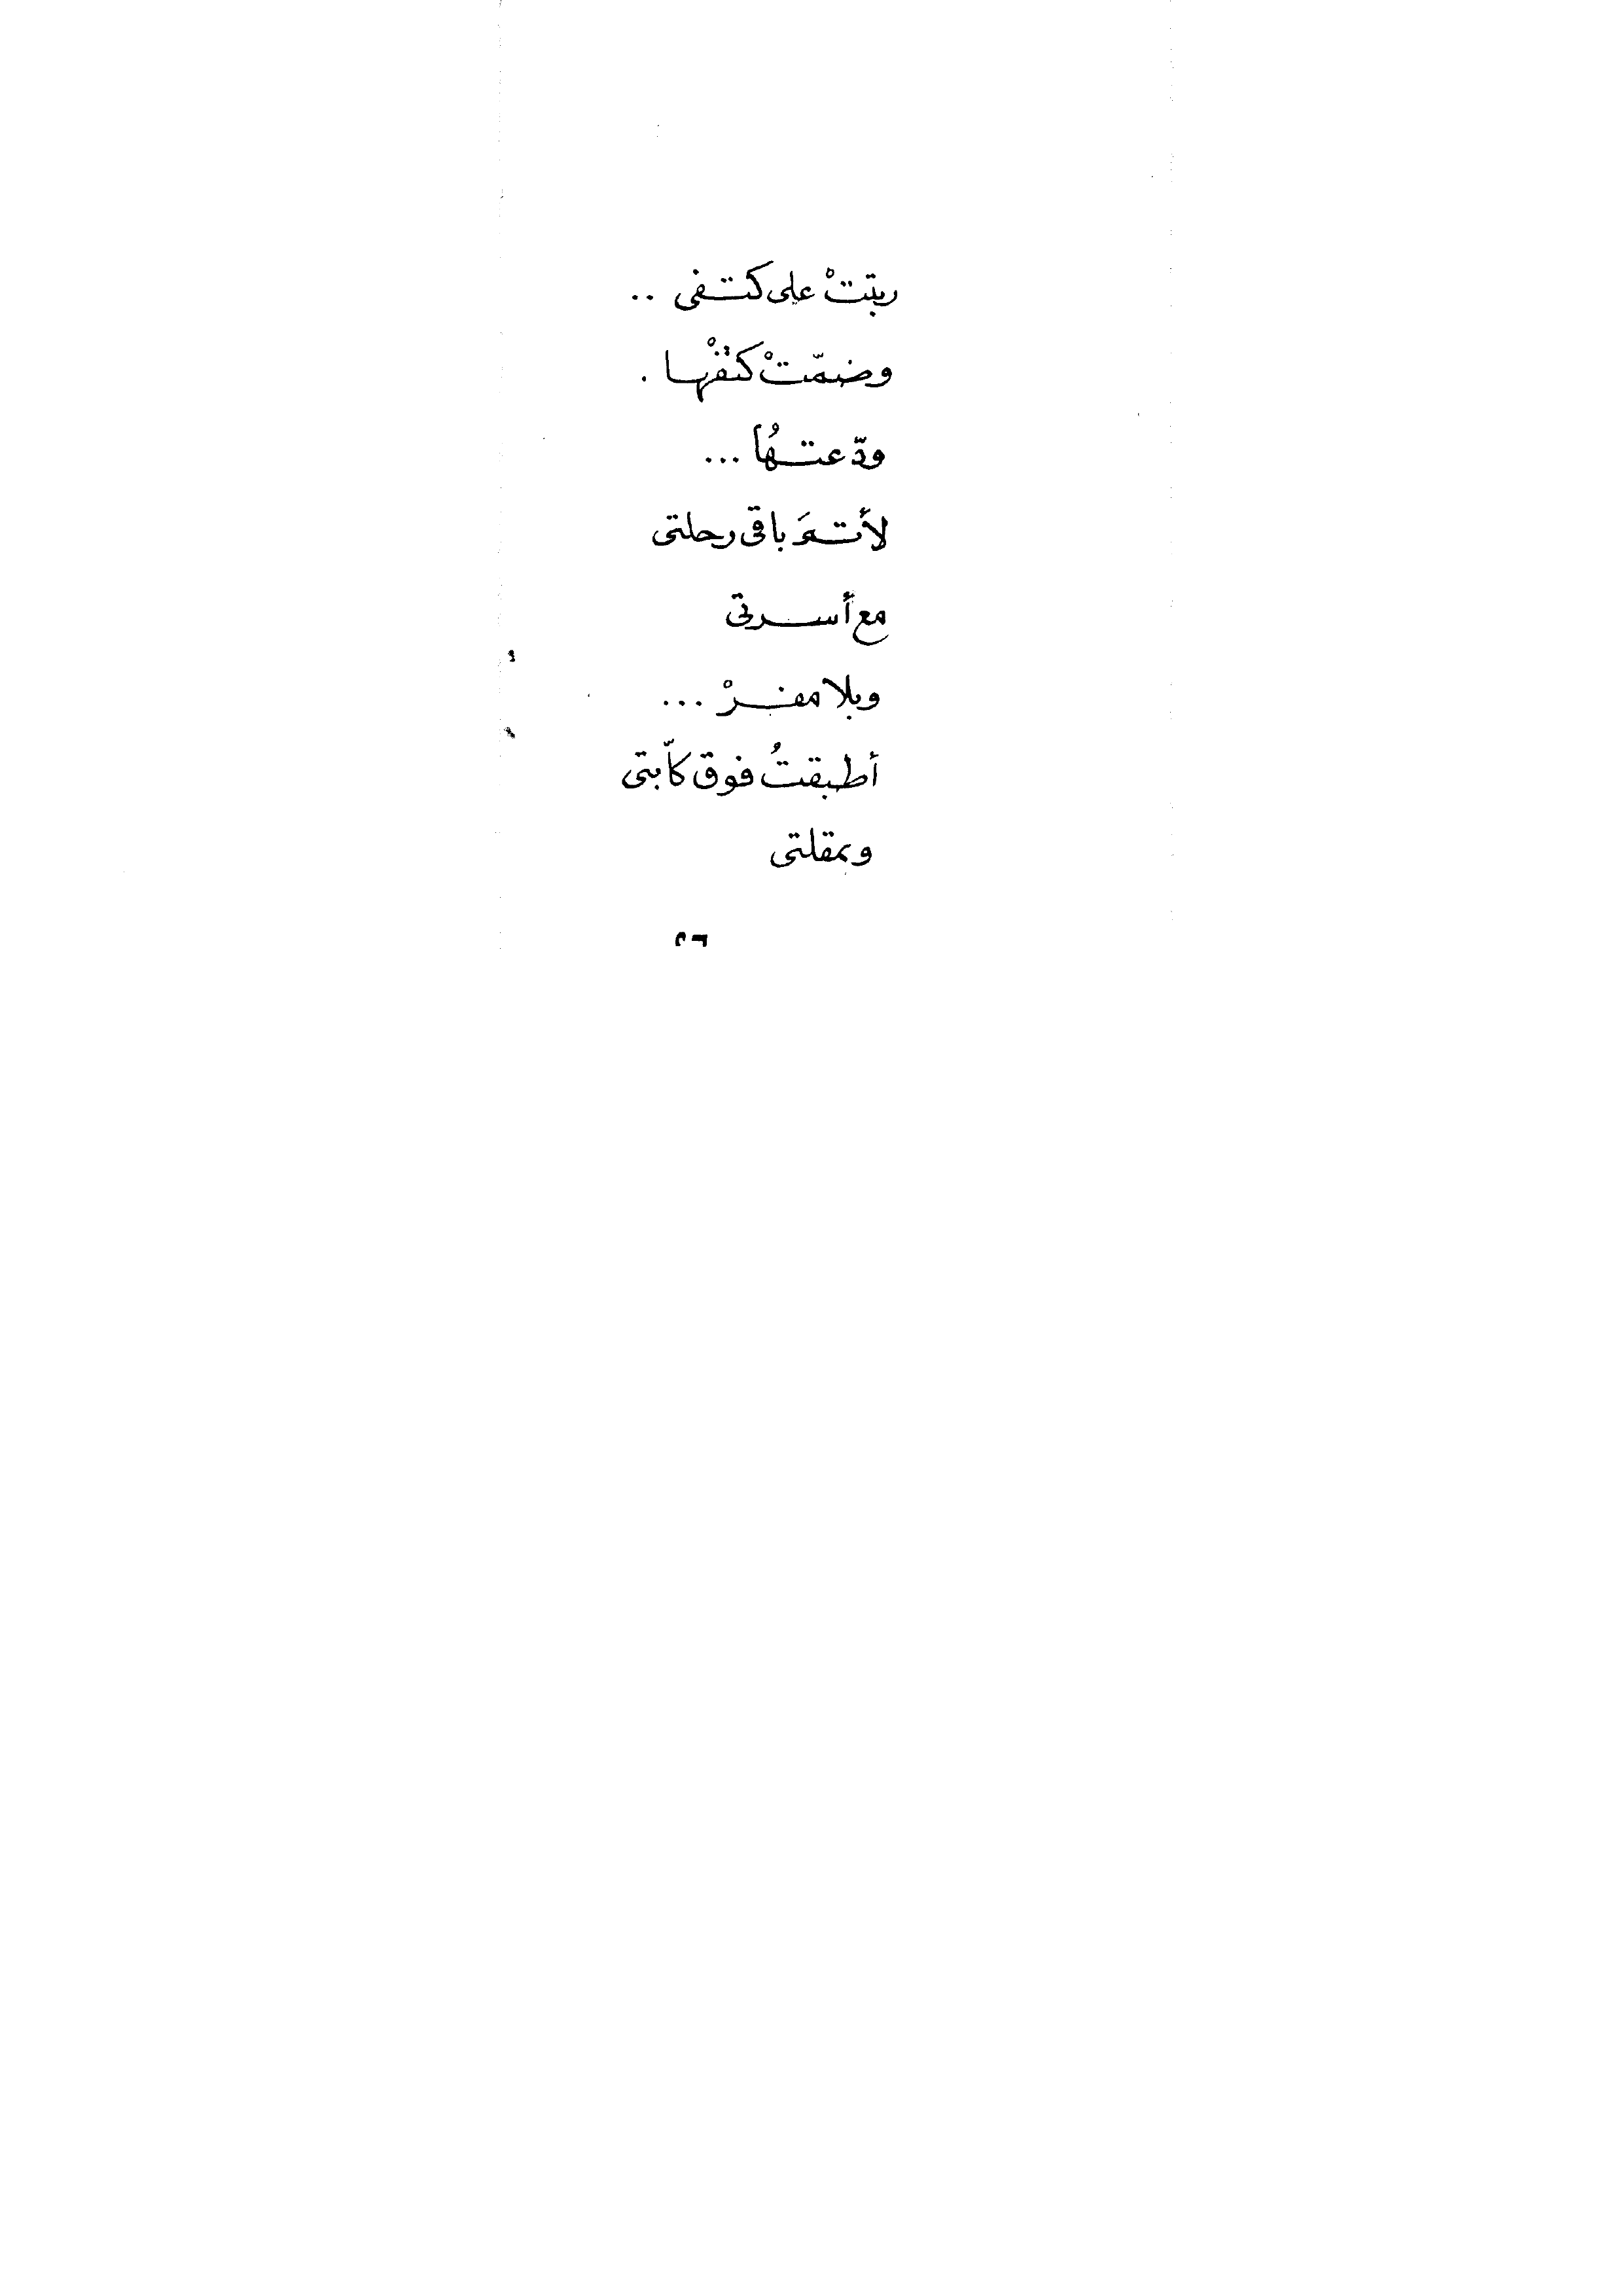 ربتتْ على كتفى ..
وضمّتْ كتفْها .
ودّعتهُا ...
لأتمَ باقى رحلتى
مع أسرتى
وبلا مفرْ ...
أطبقتُ فوق كآبتى
وبمقلتى